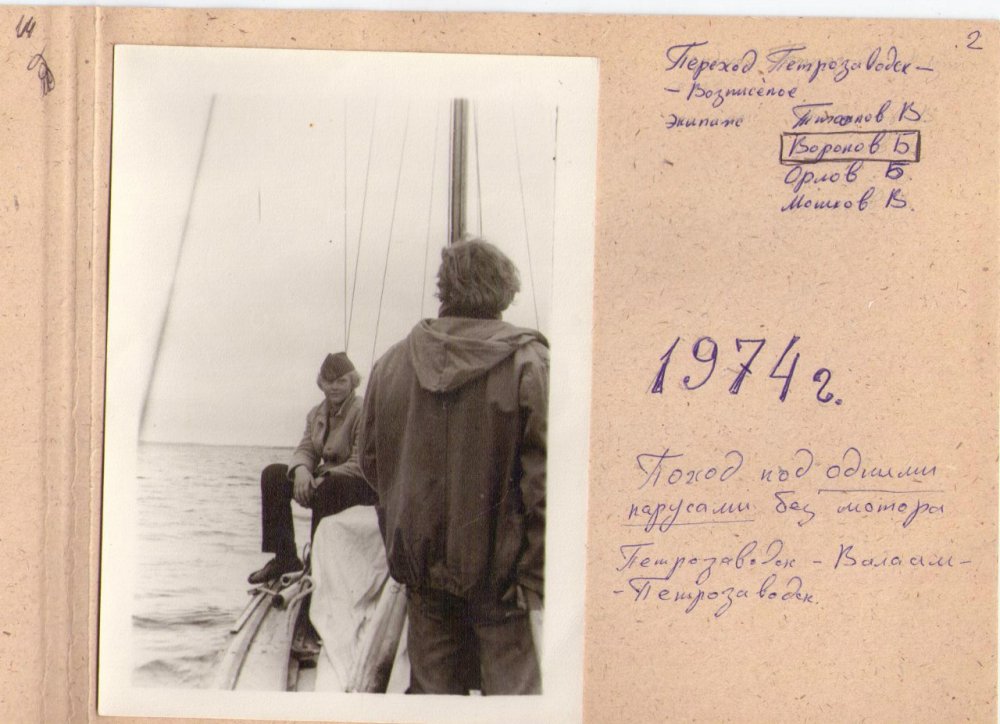 14
2
Переход Петрозаводск –
– Вознесенье
Экипаж
В.
Воронов Б
Орлов Б.
Мошков В.
1974 г.
Поход под одними
парусами без мотора
Петрозаводск – Валаам –
– Петрозаводск.